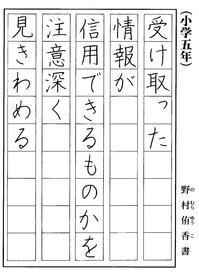 （小学五年）
受け取った
情報が
信用できるものかを
注意深く
見きわめる
野村侑香書
の むら ゆう こ